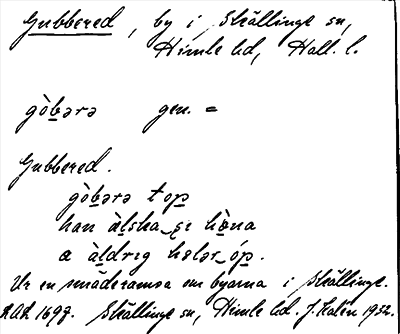 Gubbered, by i Skällinge sn,
Himle hd, Hall. l.
gòbərə gen. =
Gubbered.
gòbərə top
han àlska se hòna
a àldrig hələr óp.
Ur en smäderamsa om byarna i Skällinge.
1697. Skällinge sn, Himle hd. J. Kalén 1932.